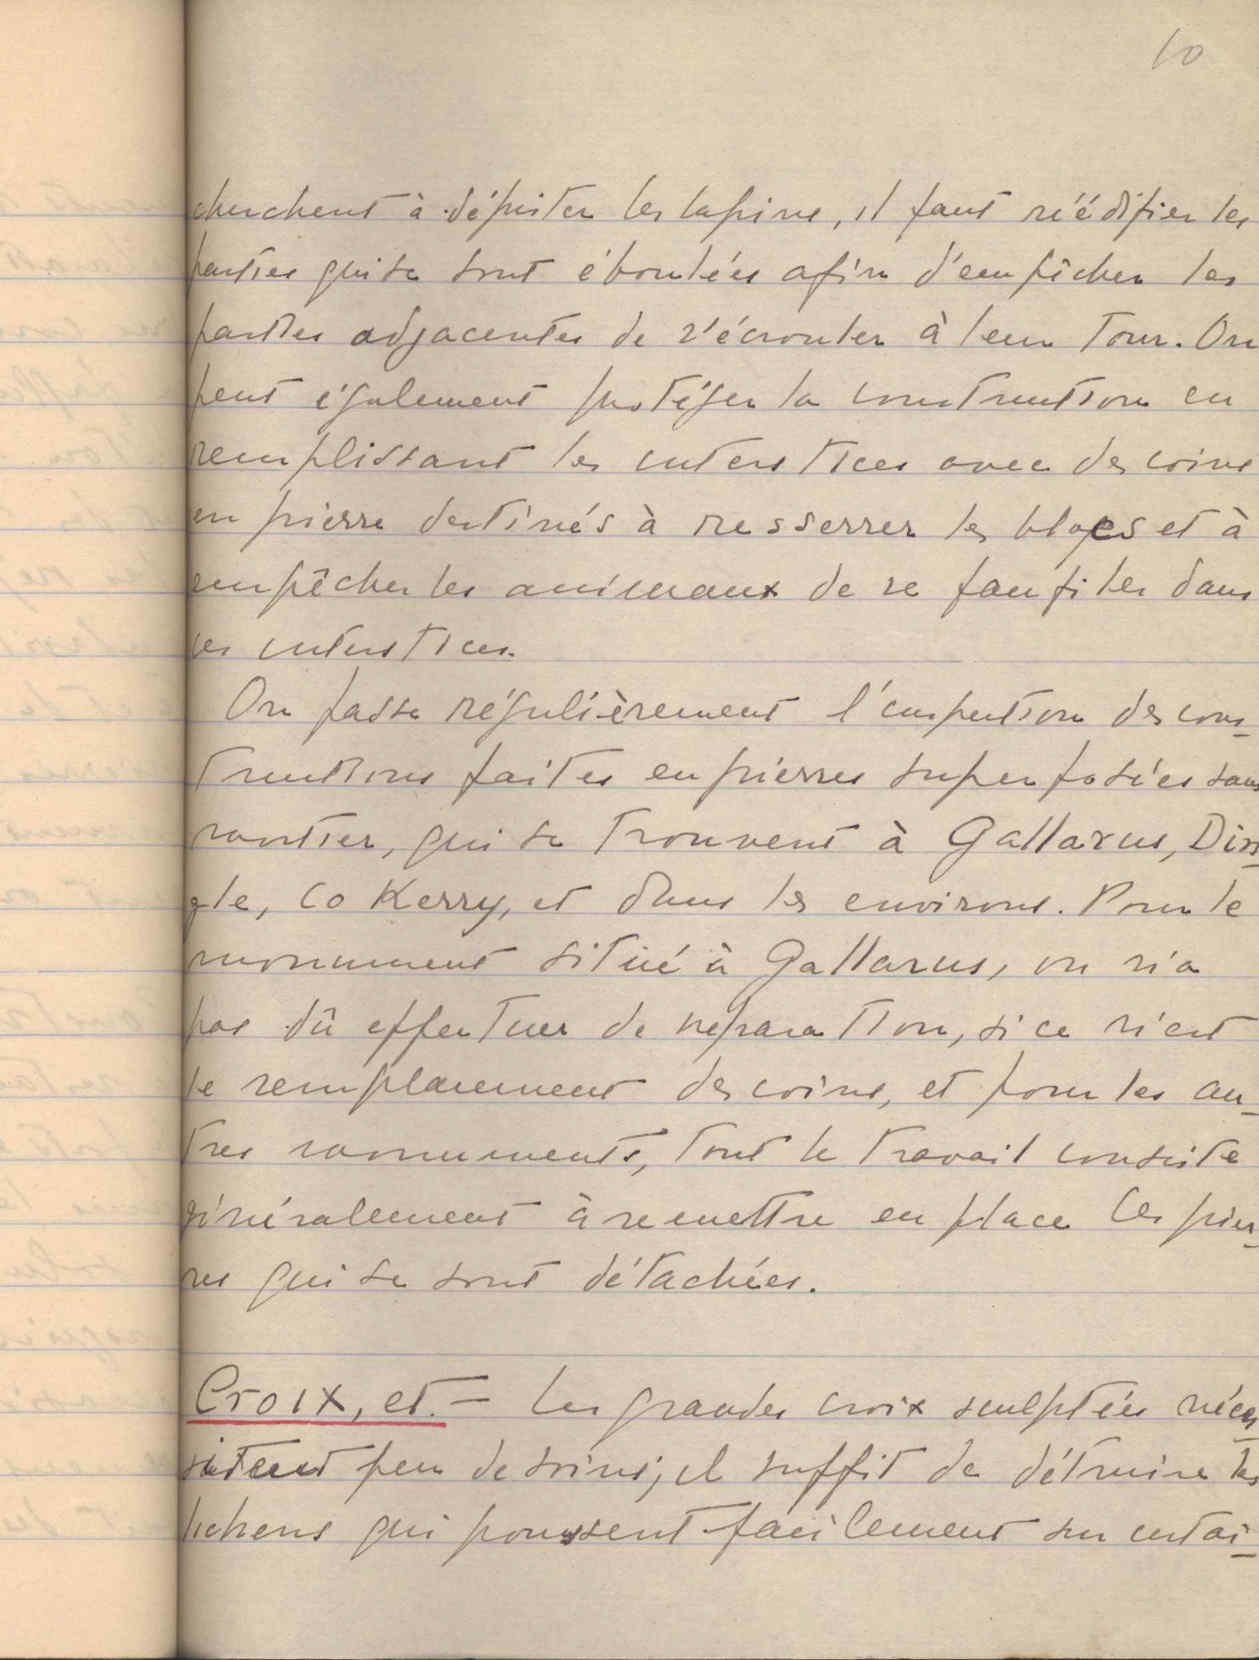 10
cherchent à dépister les lapins, il faut réédifier les
parties qui se sont éboulées afin d'empêcher les
parties adjacentes de s'écrouler à leur tour. On
peut également protéger la construction en
remplissant les interstices avec des coins
en pierre destinés à resserrer les blocs et à
empêcher les animaux de se faufiler dans
les interstices.
On passe régulièrement l'inspection des cons-
tructions faites en pierres superposées sans
mortier, qui se trouvent à Gallarus, Din-
gle, Co Kerry, et dans les environs. Pour le
monument situé à Gallarus, on n'a
pas dû effectuer de réparation, si ce n'est
le remplacement des coins, et pour les au-
tres monuments, tout le travail consiste
généralement à remettre en place les pier-
res qui se sont détachées.
Croix, et. = Les grandes croix sculptées néces-
sitent peu de soins; il suffit de détruire les
lichens qui poussent facilement sur certai-